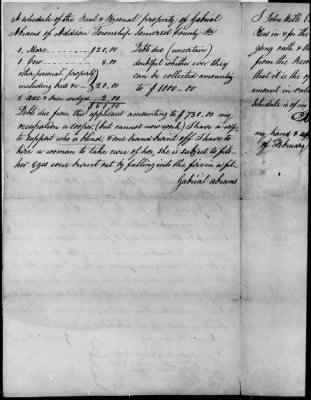 A schedule of the Real & Personal property, of Gabriel
Abrams of Addison Township Somerset County Pa
1, Mare - - - - - - - - $20,00 Debts due (uncertain)
1, Cow - - - - - - - - 8.00 doubtful whether ever they
other personal property can be collected amounting
including beds &c } 30.00 to $1000-00
1 axe & Iron wedge - - 2.00
Debts due from this applicant amounting to $730.00 my
occupation a cooper, (but cannot now work) I have a wife
to support who is blind, & one hand burnt off. I have to
hire a woman to take care of her, she is subject to fits
her eyes were burnt out by falling into the fire in a fit.
Gabriel Abrams
I John Wells
Pleas in & for the
going oath & the
from the Recor
that it is the o
amount in val
Schedule is of
my hand &
of February